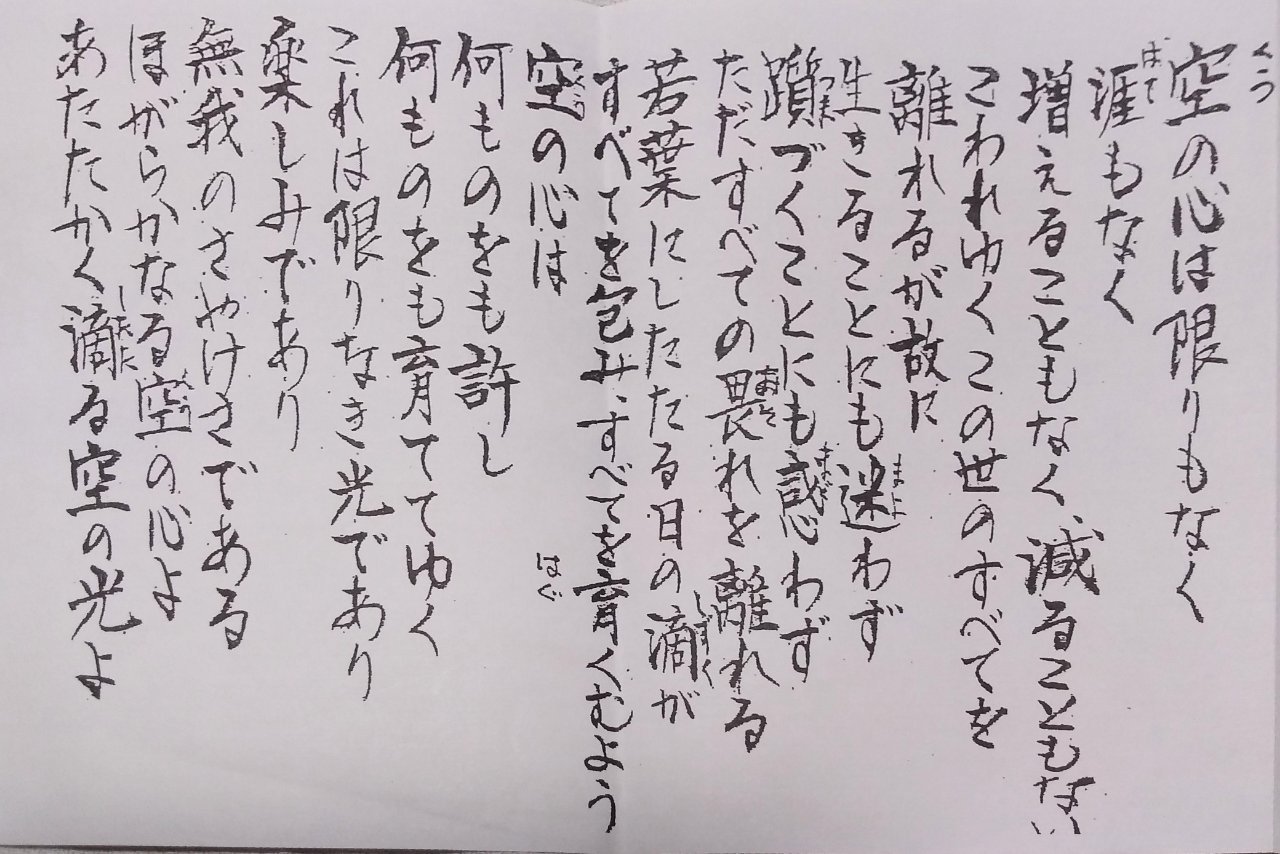 空の心は限りもなく
涯もなく
増えることもなく、減ることもない
こわれゆくこの世のすべてを
離れるが故に
生きることにも迷わず
躓づくことにも惑わず
ただすべての畏れを離れる
若葉にしたたる日の滴が
すべてを包み、すべてを育くむよう
空の心は
何ものをも許し
何ものをも育ててゆく
これは限りなき光であり
楽しみであり
無我のさやけさである
ほがらかなる空の心よ
あたたかく滴る空の光よ